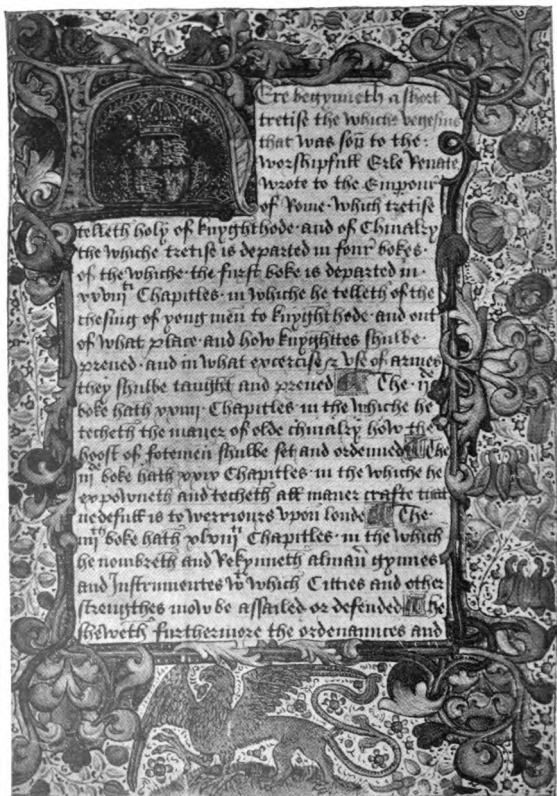 Here begynneth a short
tretise the whiche vegesius
that was son to the
worshipfull Erle Renate
wrote to the Emporour
of Rome · which tretise
telleth holy of knyghthode · and of Chivalry
the whiche tretise is departed in four bokes ·
of the whiche · the furst boke is departed in ·
xxviijti Chapitles · in whiche he telleth of the
chesing of yong men to knyghthode · and out
of what place · and how knyghttes shulbe ·
preved · and in what excercise & vse of armes
they shulbe taught and preved The · ijde
boke hath xxiiij · Chapitles · in the whiche he
techeth the maner of olde chivalry how the
hoost of fotemen shulbe set and ordeined The
iijde boke hath xxiv Chapitles · in the whiche he
expowneth and techeth all maner crafte that
nedefull is to werriours vpon londe The ·
iiijth boke hath xlviijti Chapitles · in the which
he nombreth and Rekynneth alman gynnes
and Instrumentes with which Citties and other
strengthes mow be assailed or defended The
sheweth furthermore the ordenannces and